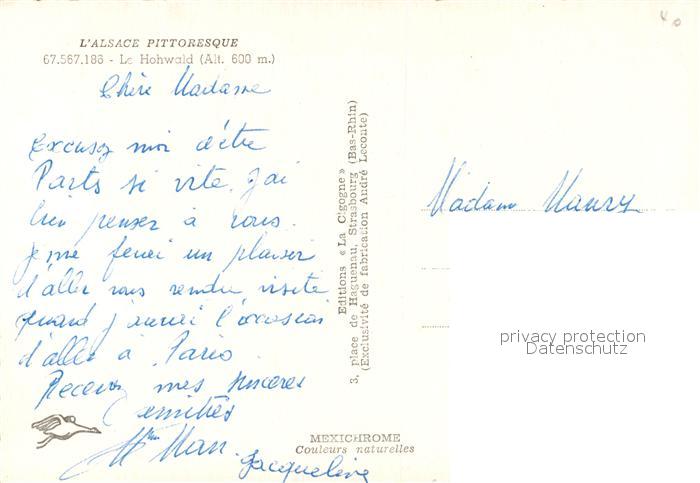 L'ALSACE PITTORESQUE
67.567.186 - Le Hohwald (Alt. 600 m.)
Chère Madame
Excusez moi d'être
Parts si vite. J'ai
bien penser à vous.
je me ferai un plaisir
d'aller vous rendre visite
quand j'aurai l'occasion
d'aller à Paris.
Recevez mes sinceres
amitiés
Jacqueline
Editions « La Cigogne »
3, place de Haguenau, Strasbourg (Bas-Rhin)
(Exclusivité de fabrication André Leconte)
MEXICHROME
Couleurs naturelles
Madame Maury
privacy protection
Datenschutz